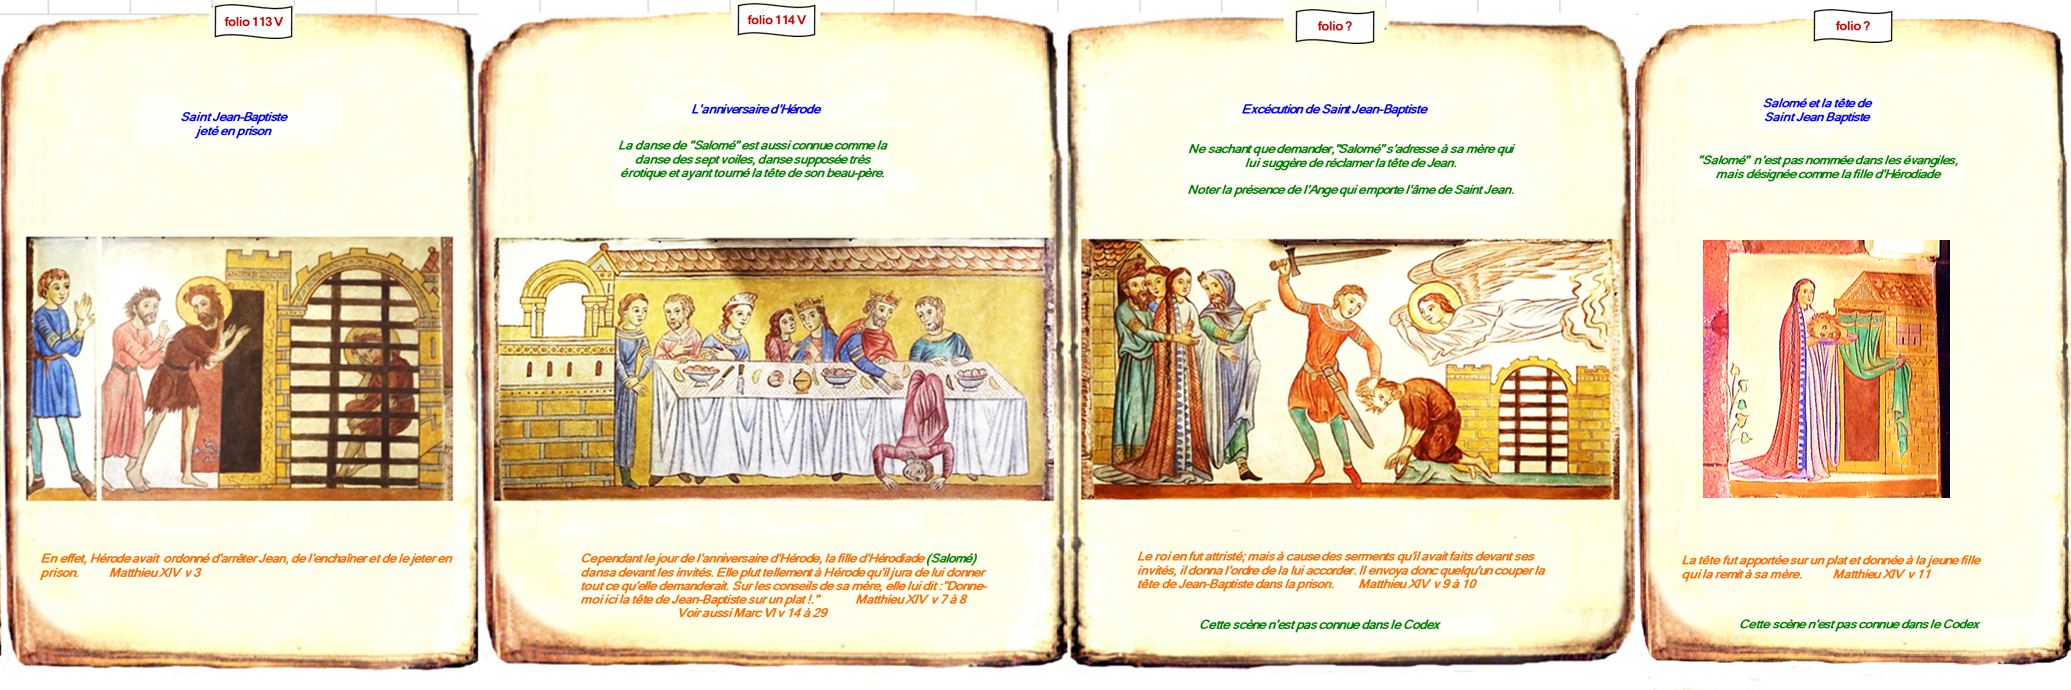 folio 113 V
Saint Jean-Baptiste
jeté en prison
En effet, Hérode avait ordonné d'arrêter Jean, de l'enchaîner et de le jeter en
prison. Matthieu XIV v 3
folio 114 V
L'anniversaire d'Hérode
La danse de "Salomé" est aussi connue comme la
danse des sept voiles, danse supposée très
érotique et ayant tourné la tête de son beau-père.
Cependant le jour de l'anniversaire d'Hérode, la fille d'Hérodiade (Salomé)
dansa devant les invités. Elle plut tellement à Hérode qu'il jura de lui donner
tout ce qu'elle demanderait. Sur les conseils de sa mère, elle lui dit :"Donne-
moi ici la tête de Jean-Baptiste sur un plat !." Matthieu XIV v 7 à 8
Voir aussi Marc VI v 14 à 29
folio ?
Excécution de Saint Jean-Baptiste
Ne sachant que demander,"Salomé" s'adresse à sa mère qui
lui suggère de réclamer la tête de Jean.
Noter la présence de l'Ange qui emporte l'âme de Saint Jean.
Le roi en fut attristé; mais à cause des serments qu'il avait faits devant ses
invités, il donna l'ordre de la lui accorder. Il envoya donc quelqu'un couper la
tête de Jean-Baptiste dans la prison. Matthieu XIV v 9 à 10
Cette scène n'est pas connue dans le Codex
folio ?
Salomé et la tête de
Saint Jean Baptiste
"Salomé" n'est pas nommée dans les évangiles,
mais désignée comme la fille d'Hérodiade
La tête fut apportée sur un plat et donnée à la jeune fille
qui la remit à sa mère. Matthieu XIV v 11
Cette scène n'est pas connue dans le Codex